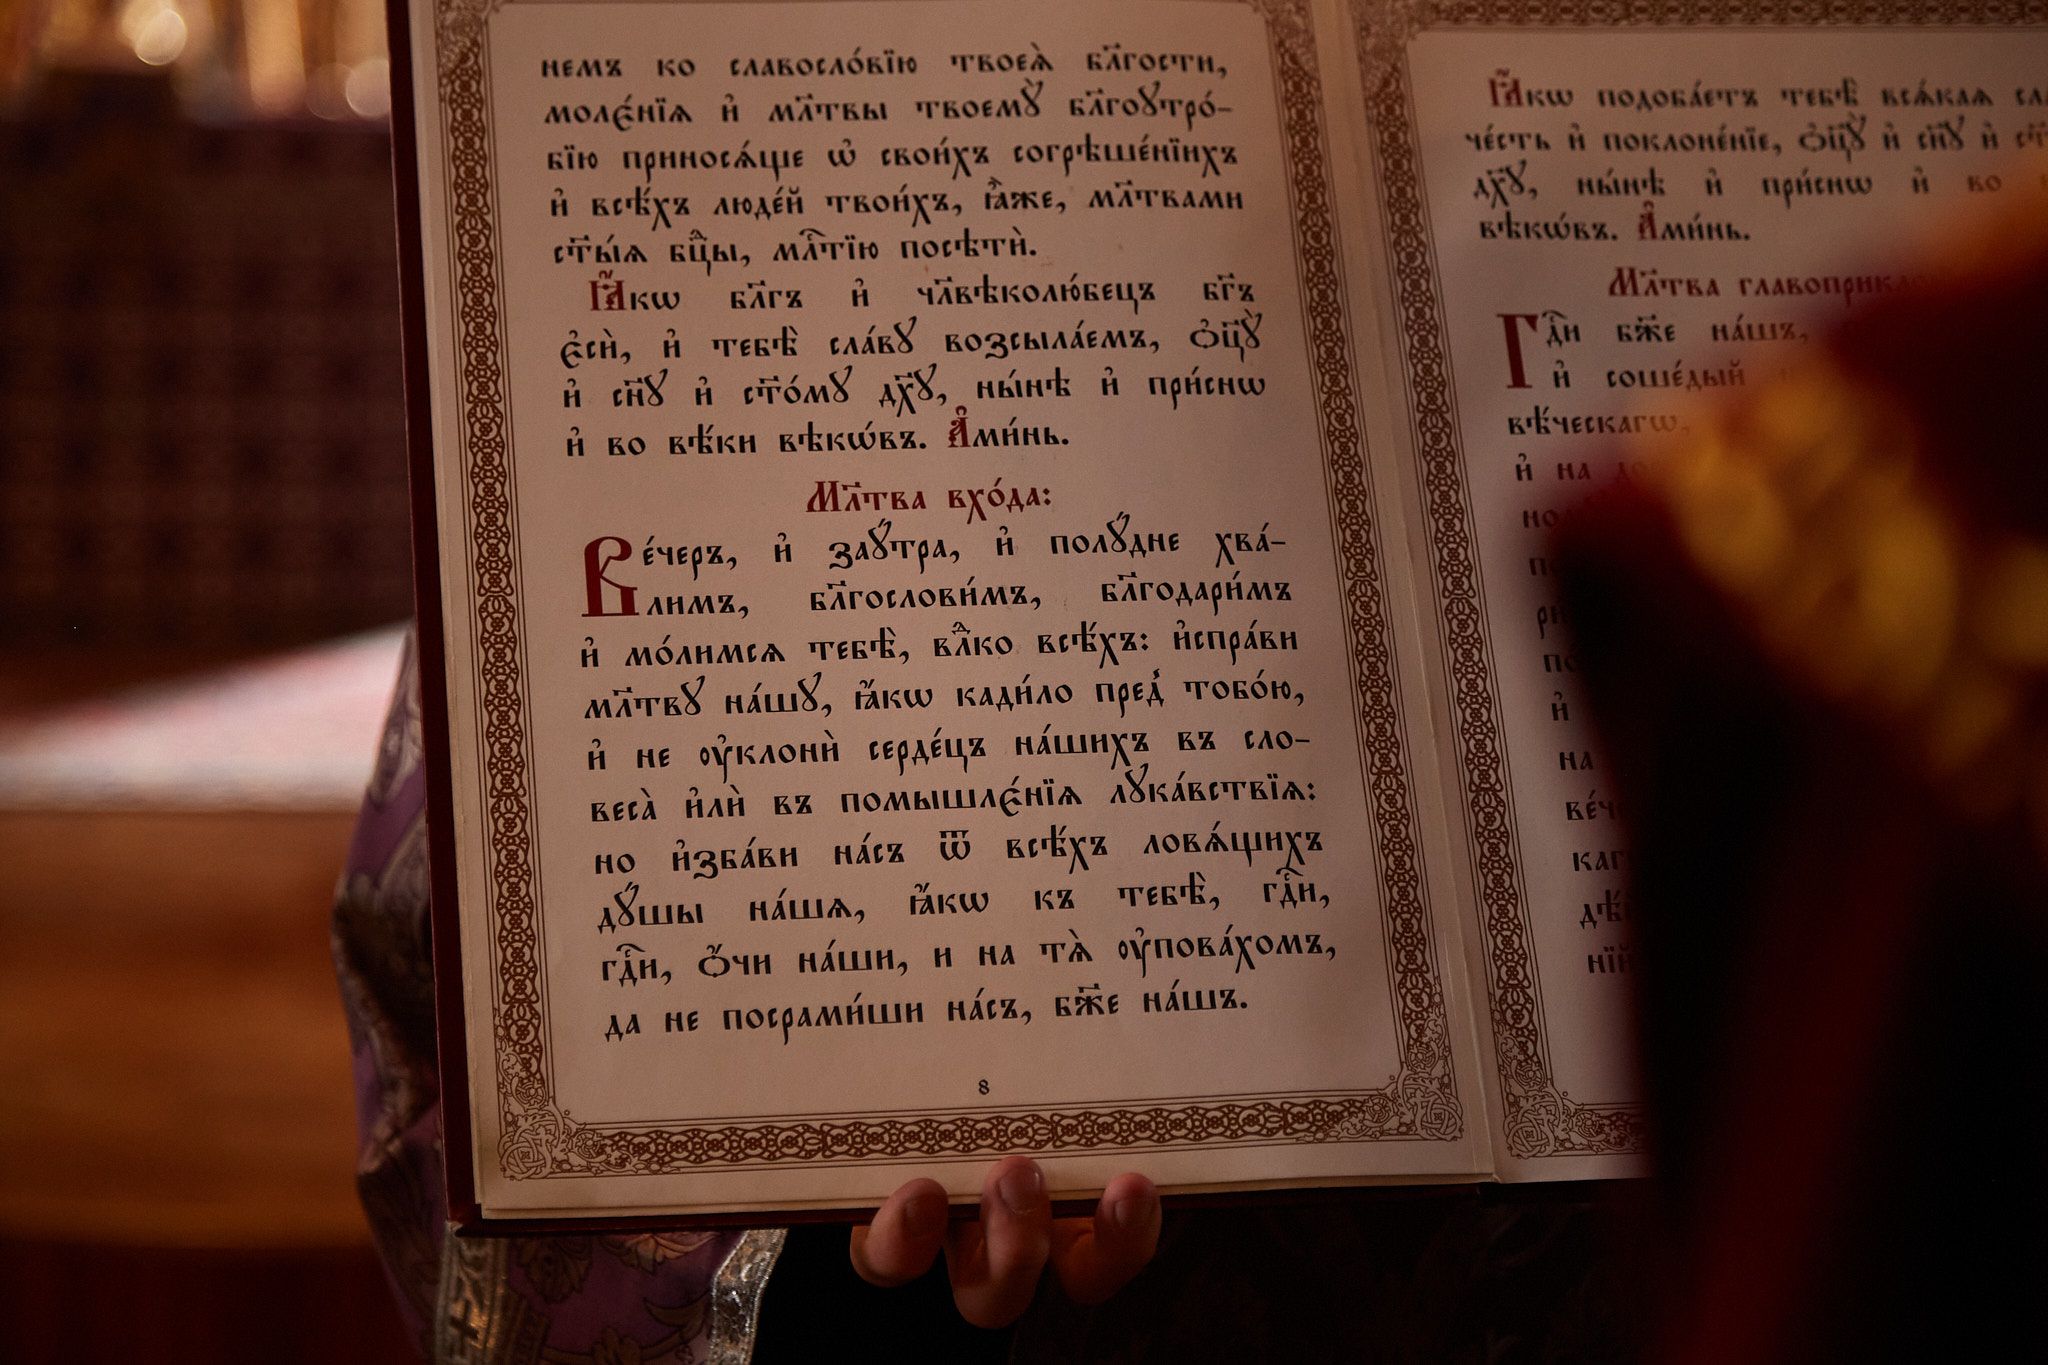 немъ ко славосло́вїю твоеѧ̀ бл҃гости,
моле́нїѧ и҆ мл҃твы твоемꙋ̀ бл҃гоꙋтро́-
бїю приносѧ́ще ѡ҆ свои́хъ согрѣше́нїихъ
и҆ всѣ́хъ люде́й твои́хъ, ꙗ҆̀же, мл҃твами
ст҃ы́ѧ бцⷣы, млⷭ҇тїю посѣтѝ.
Ꙗ҆́кѡ бл҃гъ и҆ чл҃вѣколю́бецъ бг҃ъ
є҆сѝ, и҆ тебѣ̀ сла́вꙋ возсыла́емъ, ѻ҆ц҃ꙋ̀
и҆ сн҃ꙋ и҆ ст҃о́мꙋ дх҃ꙋ, ны́нѣ и҆ при́снѡ
и҆ во вѣ́ки вѣкѡ́въ. А҆ми́нь.
Мл҃тва вхо́да:
Ве́черъ, и҆ заꙋ́тра, и҆ полꙋ́дне хва́-
лимъ, бл҃гослови́мъ, бл҃годари́мъ
и҆ мо́лимсѧ тебѣ̀, влⷣко всѣ́хъ: и҆спра́ви
мл҃твꙋ на́шꙋ, ꙗ҆́кѡ кади́ло пред̾ тобо́ю,
и҆ не ᲂу҆клонѝ серде́цъ на́шихъ въ сло-
веса̀ и҆лѝ въ помышле́нїѧ лꙋка́вствїѧ:
но и҆зба́ви на́съ ѿ всѣ́хъ ловѧ́щихъ
дꙋ́шы на́шѧ, ꙗ҆́кѡ къ тебѣ̀, гдⷭ҇и,
гдⷭ҇и, ѻ҆́чи на́ши, и на тѧ̀ ᲂу҆пова́хомъ,
да не посрами́ши на́съ, бж҃е на́шъ.
8
Ꙗ҆́кѡ подоба́етъ тебѣ̀ всѧ́каѧ
че́сть и҆ поклоне́нїе, ѻ҆ц҃ꙋ̀ и҆ сн҃ꙋ и҆
дх҃ꙋ, ны́нѣ и҆ при́снѡ и҆ во
вѣкѡ́въ. А҆ми́нь.
Мл҃тва
Гдⷭ҇и бж҃е на́шъ,
и҆ соше́дый
вѣ́ческагѡ,
и҆ на
и҆
на